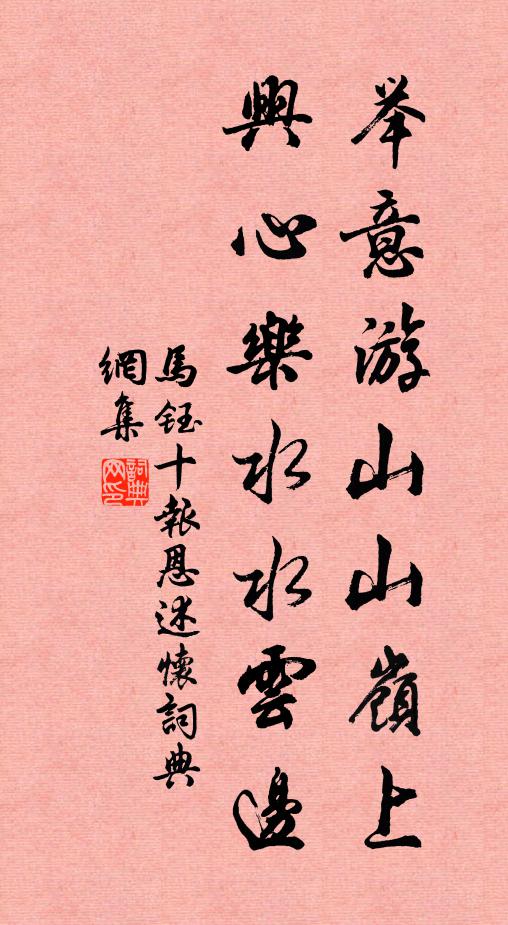 举意游山山嶺上
興心樂水水雲邊
馬鈺十報恩述懷詞典
網集
詞典网印